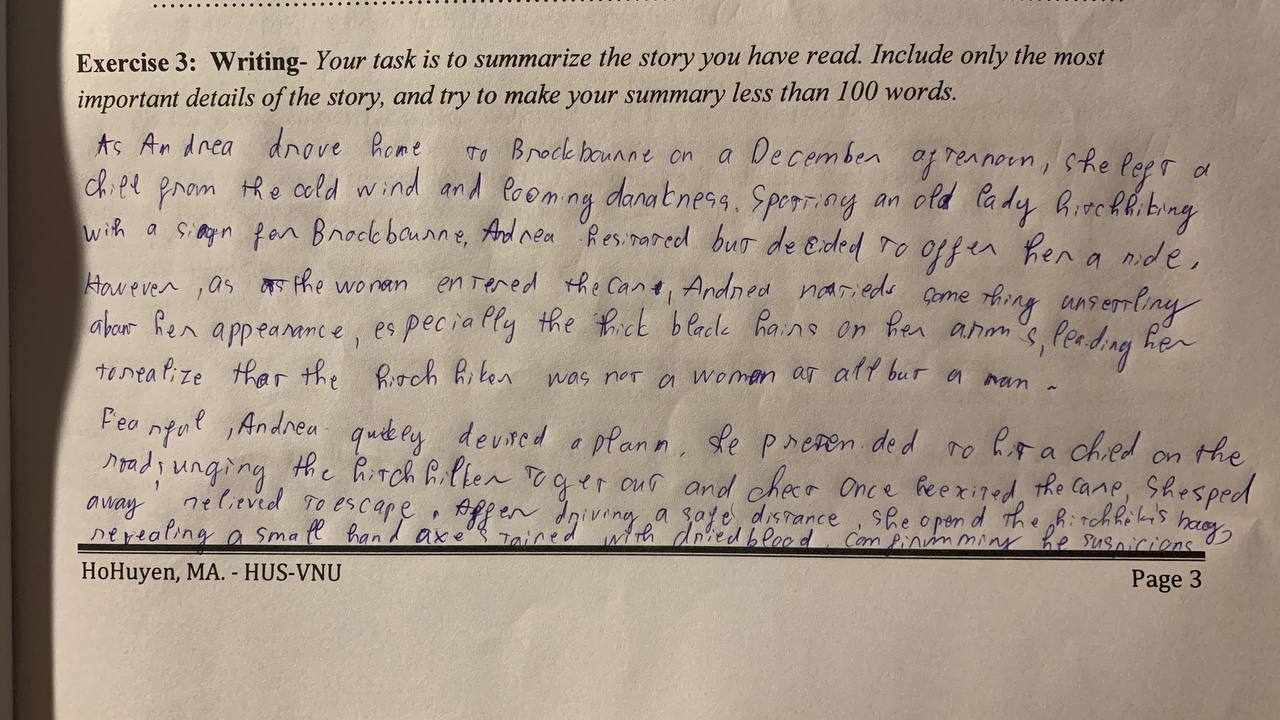 Exercise 3: Writing- Your task is to summarize the story you have read. Include only the most
important details of the story, and try to make your summary less than 100 words.
As Andrea drove home to Brockbourne on a December afternoon, she left a
chill from the cold wind and looming danakness. Spotting an old lady hitchhiking
with a siagn for Brockbourne, Andrea hesitated but decided to offer her a ride.
However, as the woman entered the care, Andrea notrieds something unsettling
about her appearance, especially the thick black hairs on her arm s, leading her
to realize that the hitch hiker was not a woman at all but a man.
Fearful, Andrea quikely deviced a plann. She pretended to hit a chied on the
road, urging the hitch hilker to get out and chect Once he exited the care, she sped
away relieved to escape. After driving a safe distance, she opend the hitchhikis baog
revealing a small hand axe stained with dried blood, confirumming he suspicions
HoHuyen, MA. - HUS-VNU
Page 3